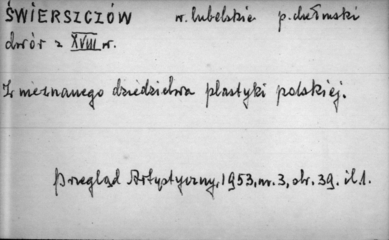 ŚWIERSZCZÓW w. lubelskie p. chełmski
dwór z XVIII w.
Z nieznanego dziedzictwa plastyki polskiej.
Przegląd Artystyczny, 1953, nr. 3, str. 39. il 1.